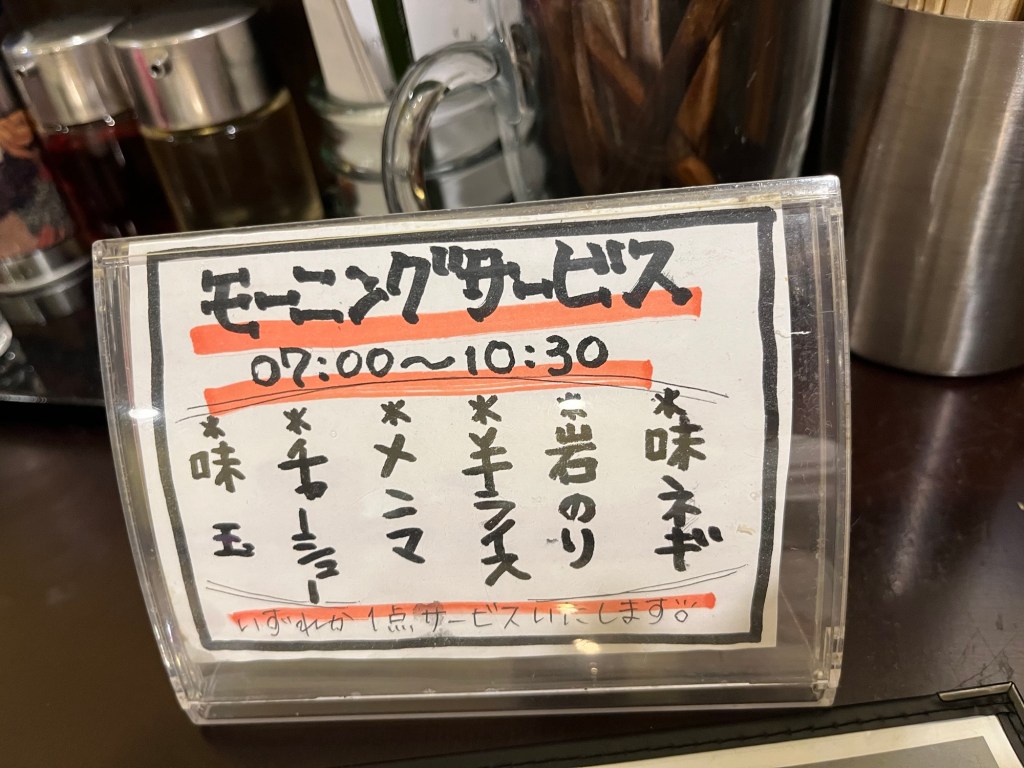 モーニングサービス
07:00〜10:30
*味ネギ
*岩のり
*半ライス
*メンマ
*チャーシュー
*味玉
いずれか1点サービスいたします